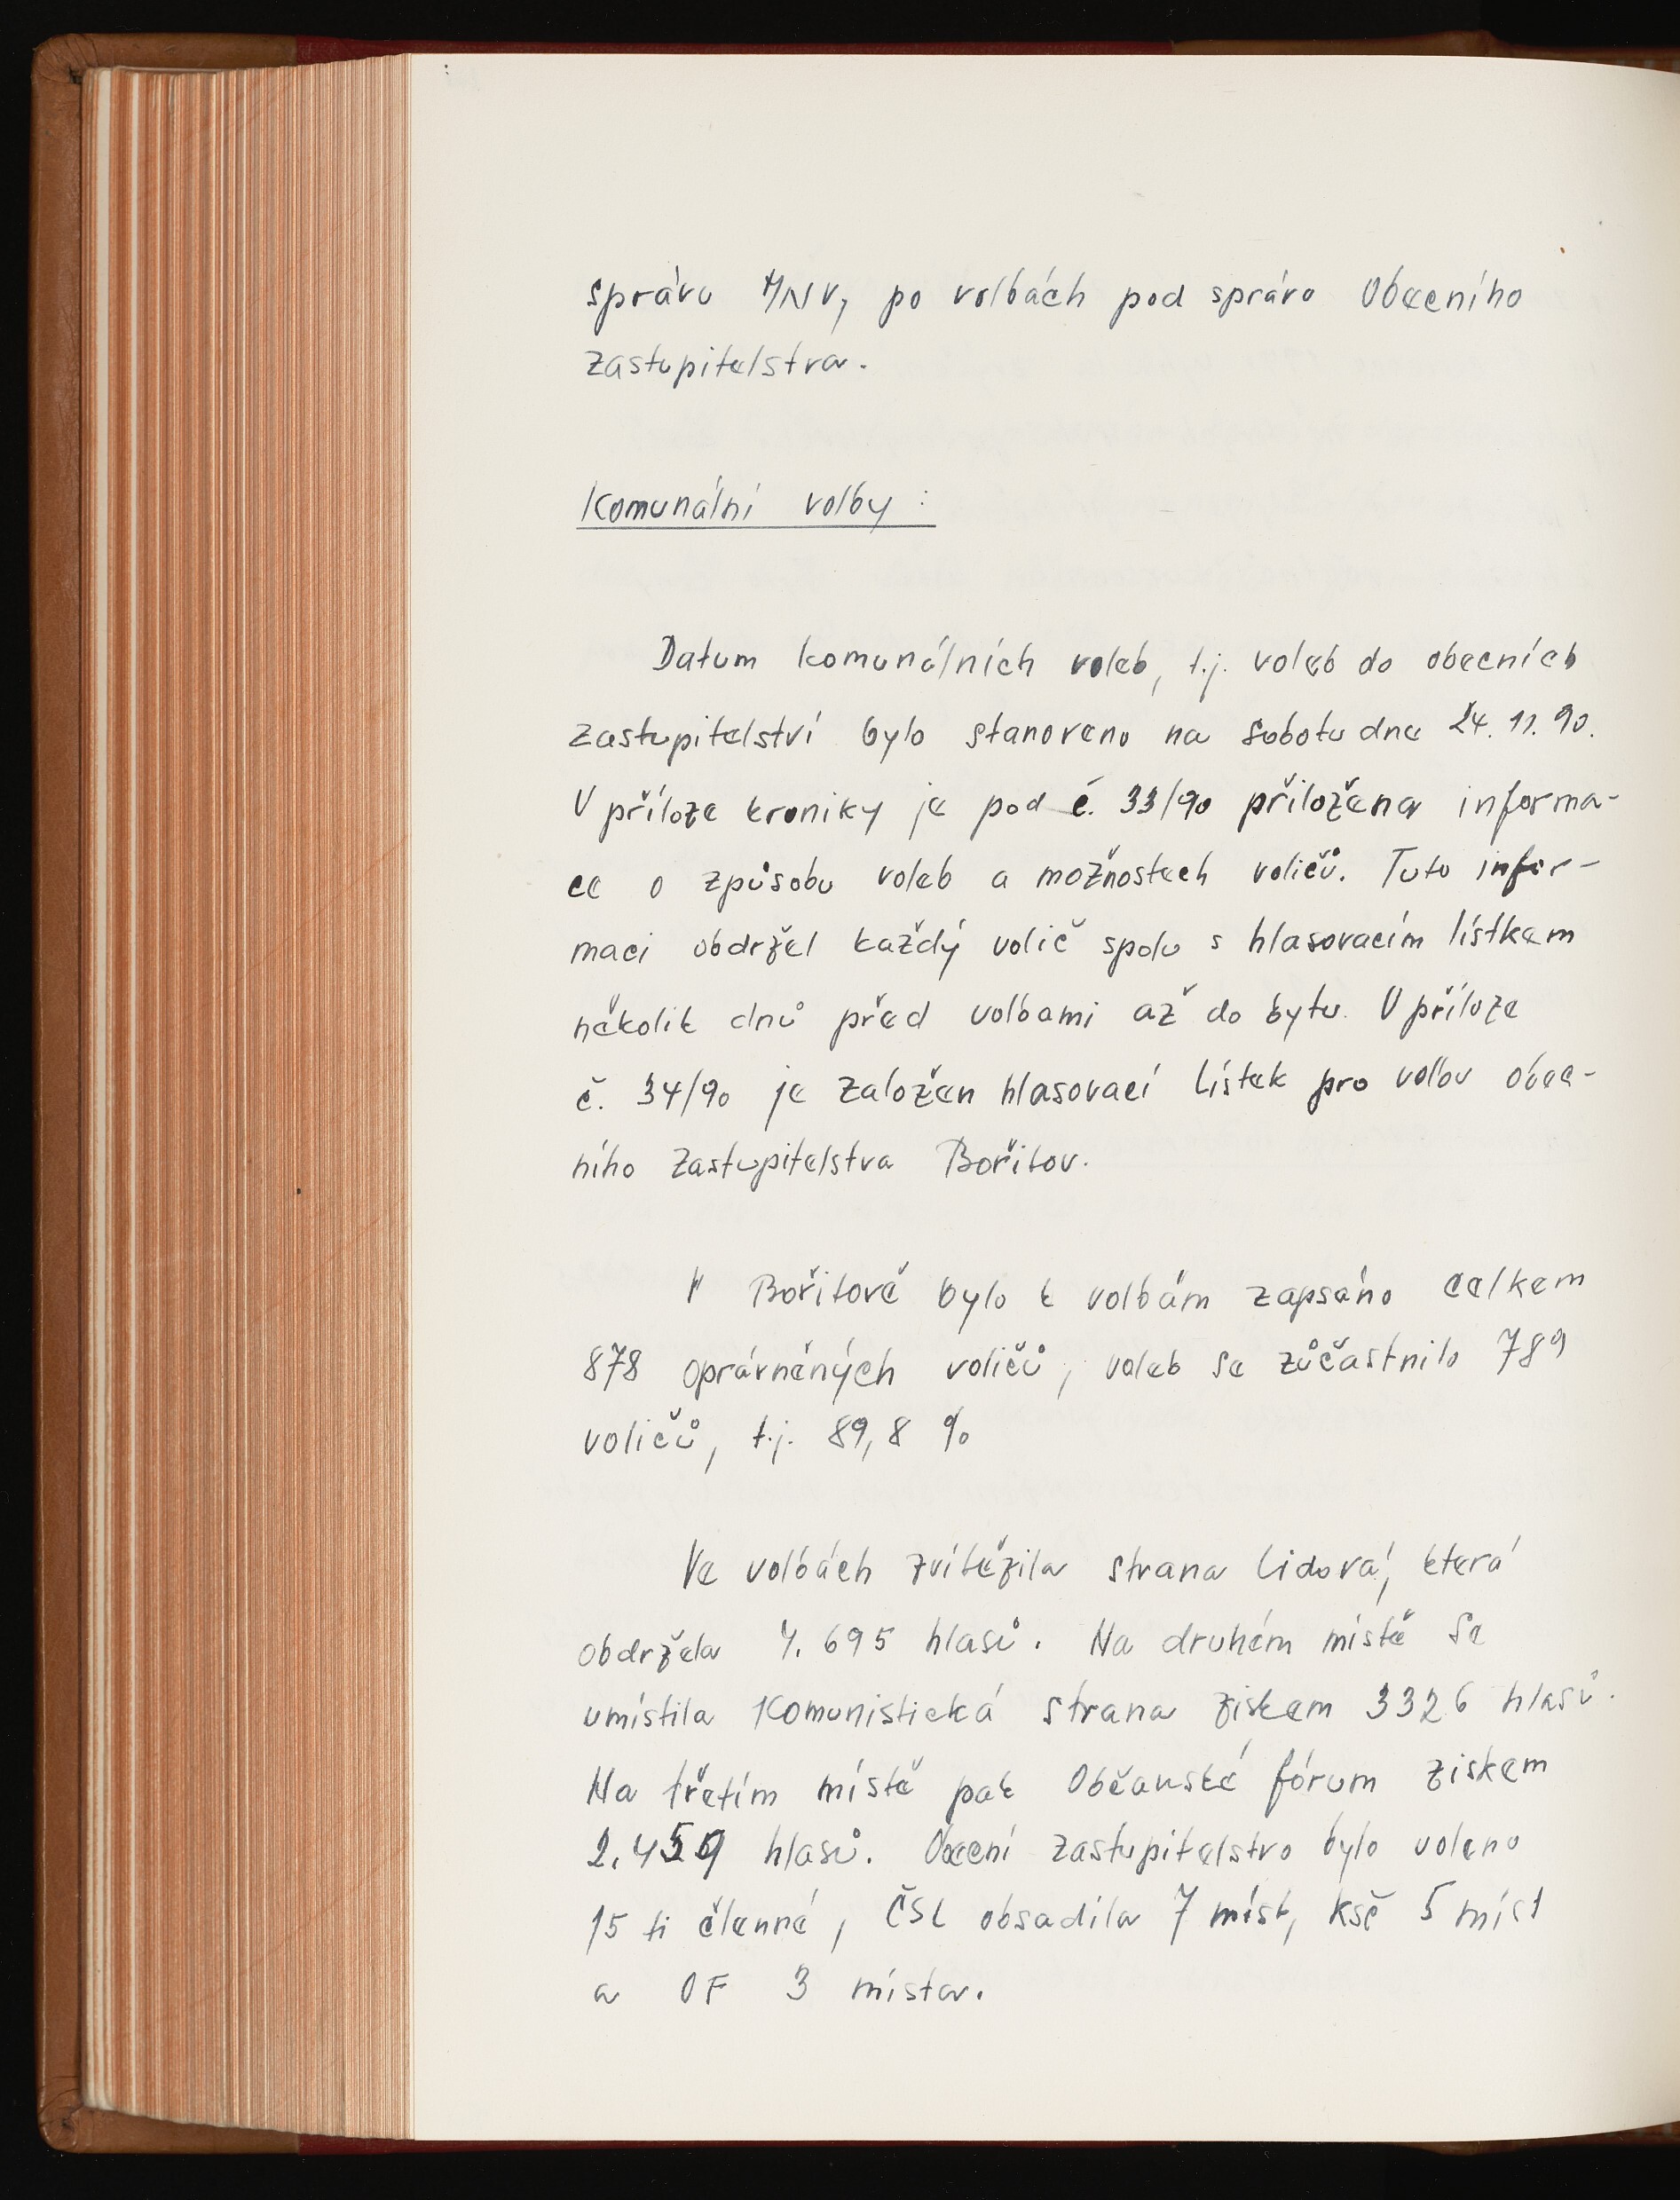 správu MNV, po volbách pod správu Obecního
zastupitelstva.
Komunální volby :
Datum komunálních voleb, t.j. voleb do obecních
zastupitelství bylo stanoveno na sobotu dne 24. 11. 90.
V příloze kroniky je pod č. 33/90 přiložena informa-
ce o způsobu voleb a možnostech voličů. Tuto infor-
maci obdržel každý volič spolu s hlasovacím lístkem
několik dnů před volbami až do bytu. V příloze
č. 34/90 je založen hlasovací lístek pro volbu obec-
ního zastupitelstva Bořitov.
V Bořitově bylo k volbám zapsáno celkem
878 oprávněných voličů, voleb se zůčastnilo 789
voličů, t.j. 89,8 %
Ve volbách zvítězila strana lidová, která
obdržela 4.695 hlasů. Na druhém místě se
umístila Komunistická strana ziskem 3326 hlasů.
Na třetím místě pak Občanské fórum ziskem
hlasů. Obecní zastupitelstvo bylo voleno
15 ti členné, ČSL obsadila 7 míst, KSČ 5 míst
a OF 3 místa.